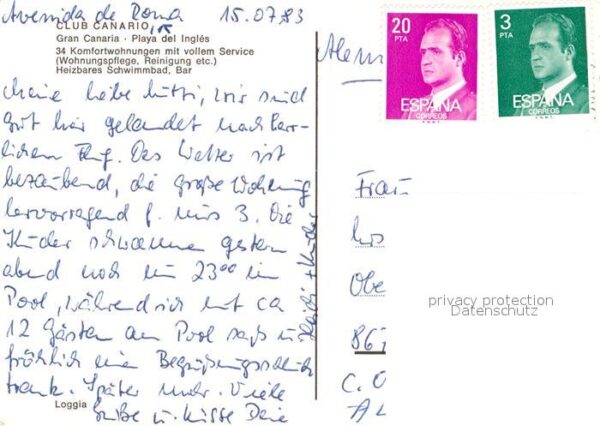 Avenida de Roma 15.07.83
CLUB CANARIO, 15
Gran Canaria · Playa del Inglés
34 Komfortwohnungen mit vollem Service
(Wohnungspflege, Reinigung etc.)
Heizbares Schwimmbad, Bar
Meine liebe Mutti, wir sind
gut hier gelandet nach herr-
lichem Flug. Das Wetter ist
bezaubernd, die große Wohnung
hervorragend f. uns 3. Die
Kinder schwammen gestern
abend noch um 23⁰⁰ im
Pool, während ich mit ca
12 Gästen am Pool saß u.
fröhlich einen Begrüßungsschluck
trank. Später mehr. Viele
Grüße u. Küsse Deine
Heidi + Kinder
Loggia
Alem
20
PTA
ESPAÑA
CORREOS
3
PTA
ESPAÑA
CORREOS
Frau
Obe
86
C. O
privacy protection
Datenschutz